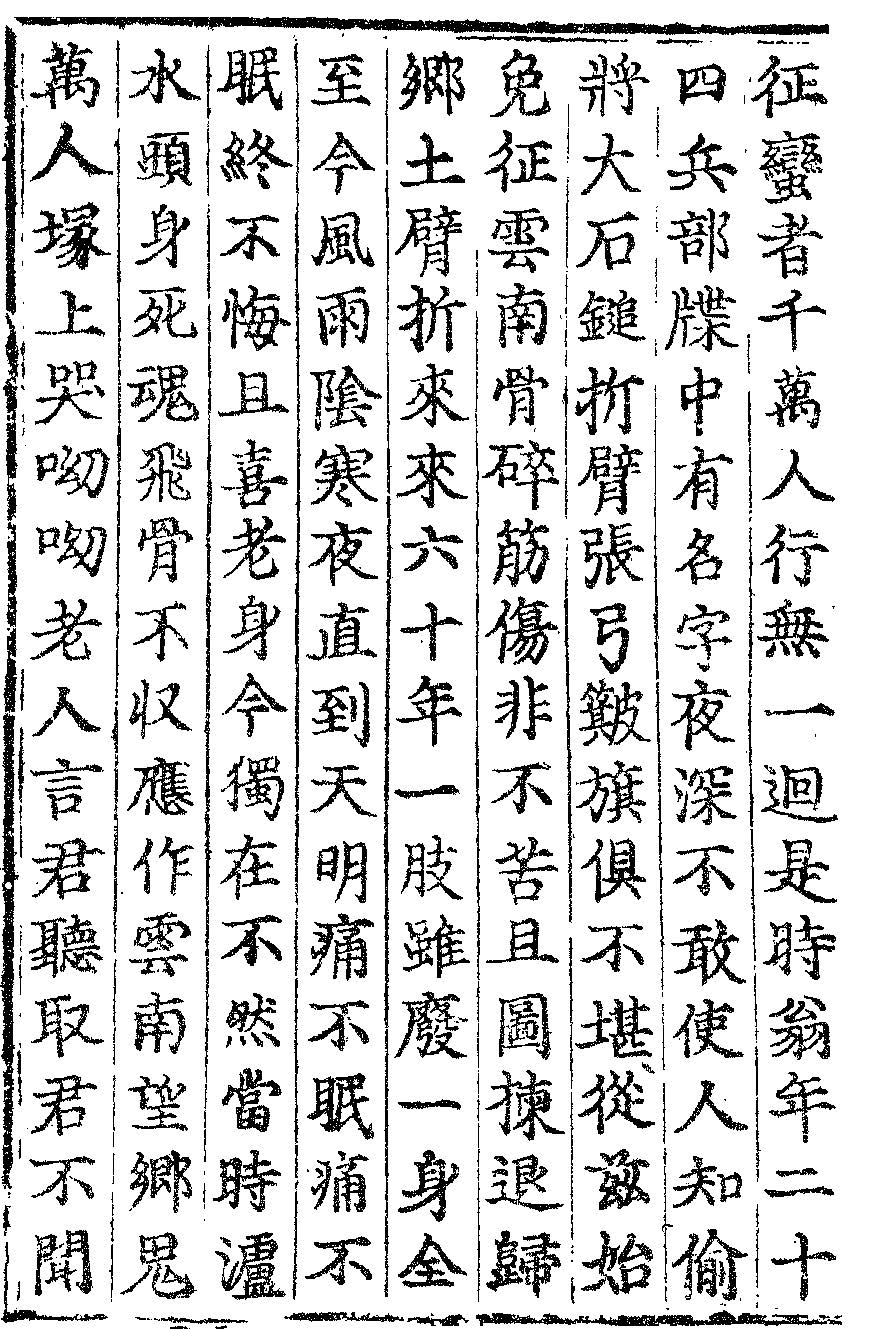 征蠻者千萬人行無一迴是時翁年二十
四兵部牒中有名字夜深不敢使人知偷
將大石鎚折臂張弓簸旗俱不堪從茲始
免征雲南骨碎筋傷非不苦且圖揀退歸
鄉土臂折來來六十年一肢雖廢一身全
至今風雨陰寒夜直到天明痛不眠痛不
眠終不悔且喜老身今獨在不然當時瀘
水頭身死魂飛骨不収應作雲南望鄉鬼
萬人塚上哭呦呦老人言君聽取君不聞